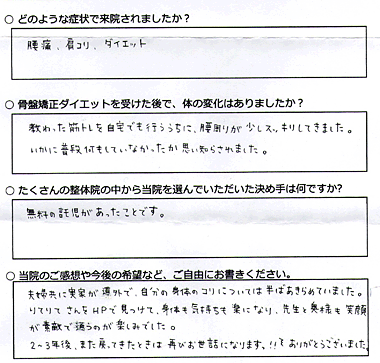 ○ どのような症状で来院されましたか?
腰痛、肩コリ、ダイエット
○ 骨盤矯正ダイエットを受けた後で、体の変化はありましたか?
教わった筋トレを自宅でも行ううちに、腰周りが少しスッキリしてきました。
いかに普段何もしていなかったか思い知らされました。
○ たくさんの整体院の中から当院を選んでいただいた決め手は何ですか?
無料の託児があったことです。
○ 当院のご感想や今後の希望など、ご自由にお書きください。
夫婦共に実家が県外で、自分の身体のコリについては半ばあきらめていました。
りてりてさんをHPで見つけて、身体も気持ちも楽になり、先生と奥様も笑顔
が素敵で通うのが楽しみでした。
2～3年後、また戻ってきたときは再びお世話になります、!!ありがとうございました。